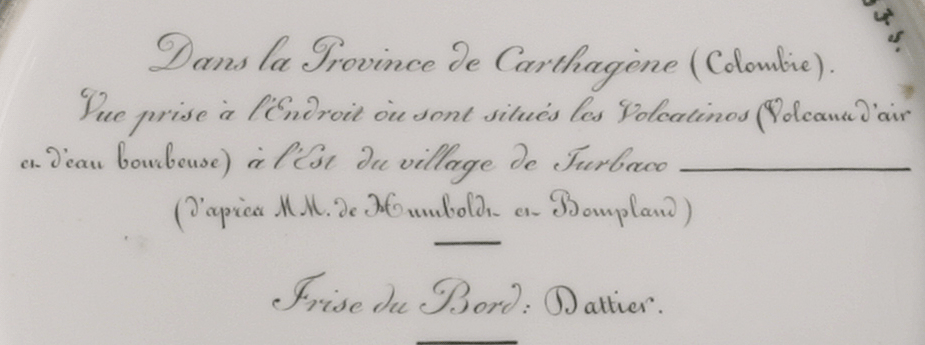 Dans la Province de Carthagène (Colombie).
Vue prise à l'Endroit où sont situés les Volcatinos (Volcans d'air
et d'eau bourbeuse) à l'Est du village de Turbaco
(d'après MM. de Humboldt et Bompland)
Frise du Bord: Dattier.